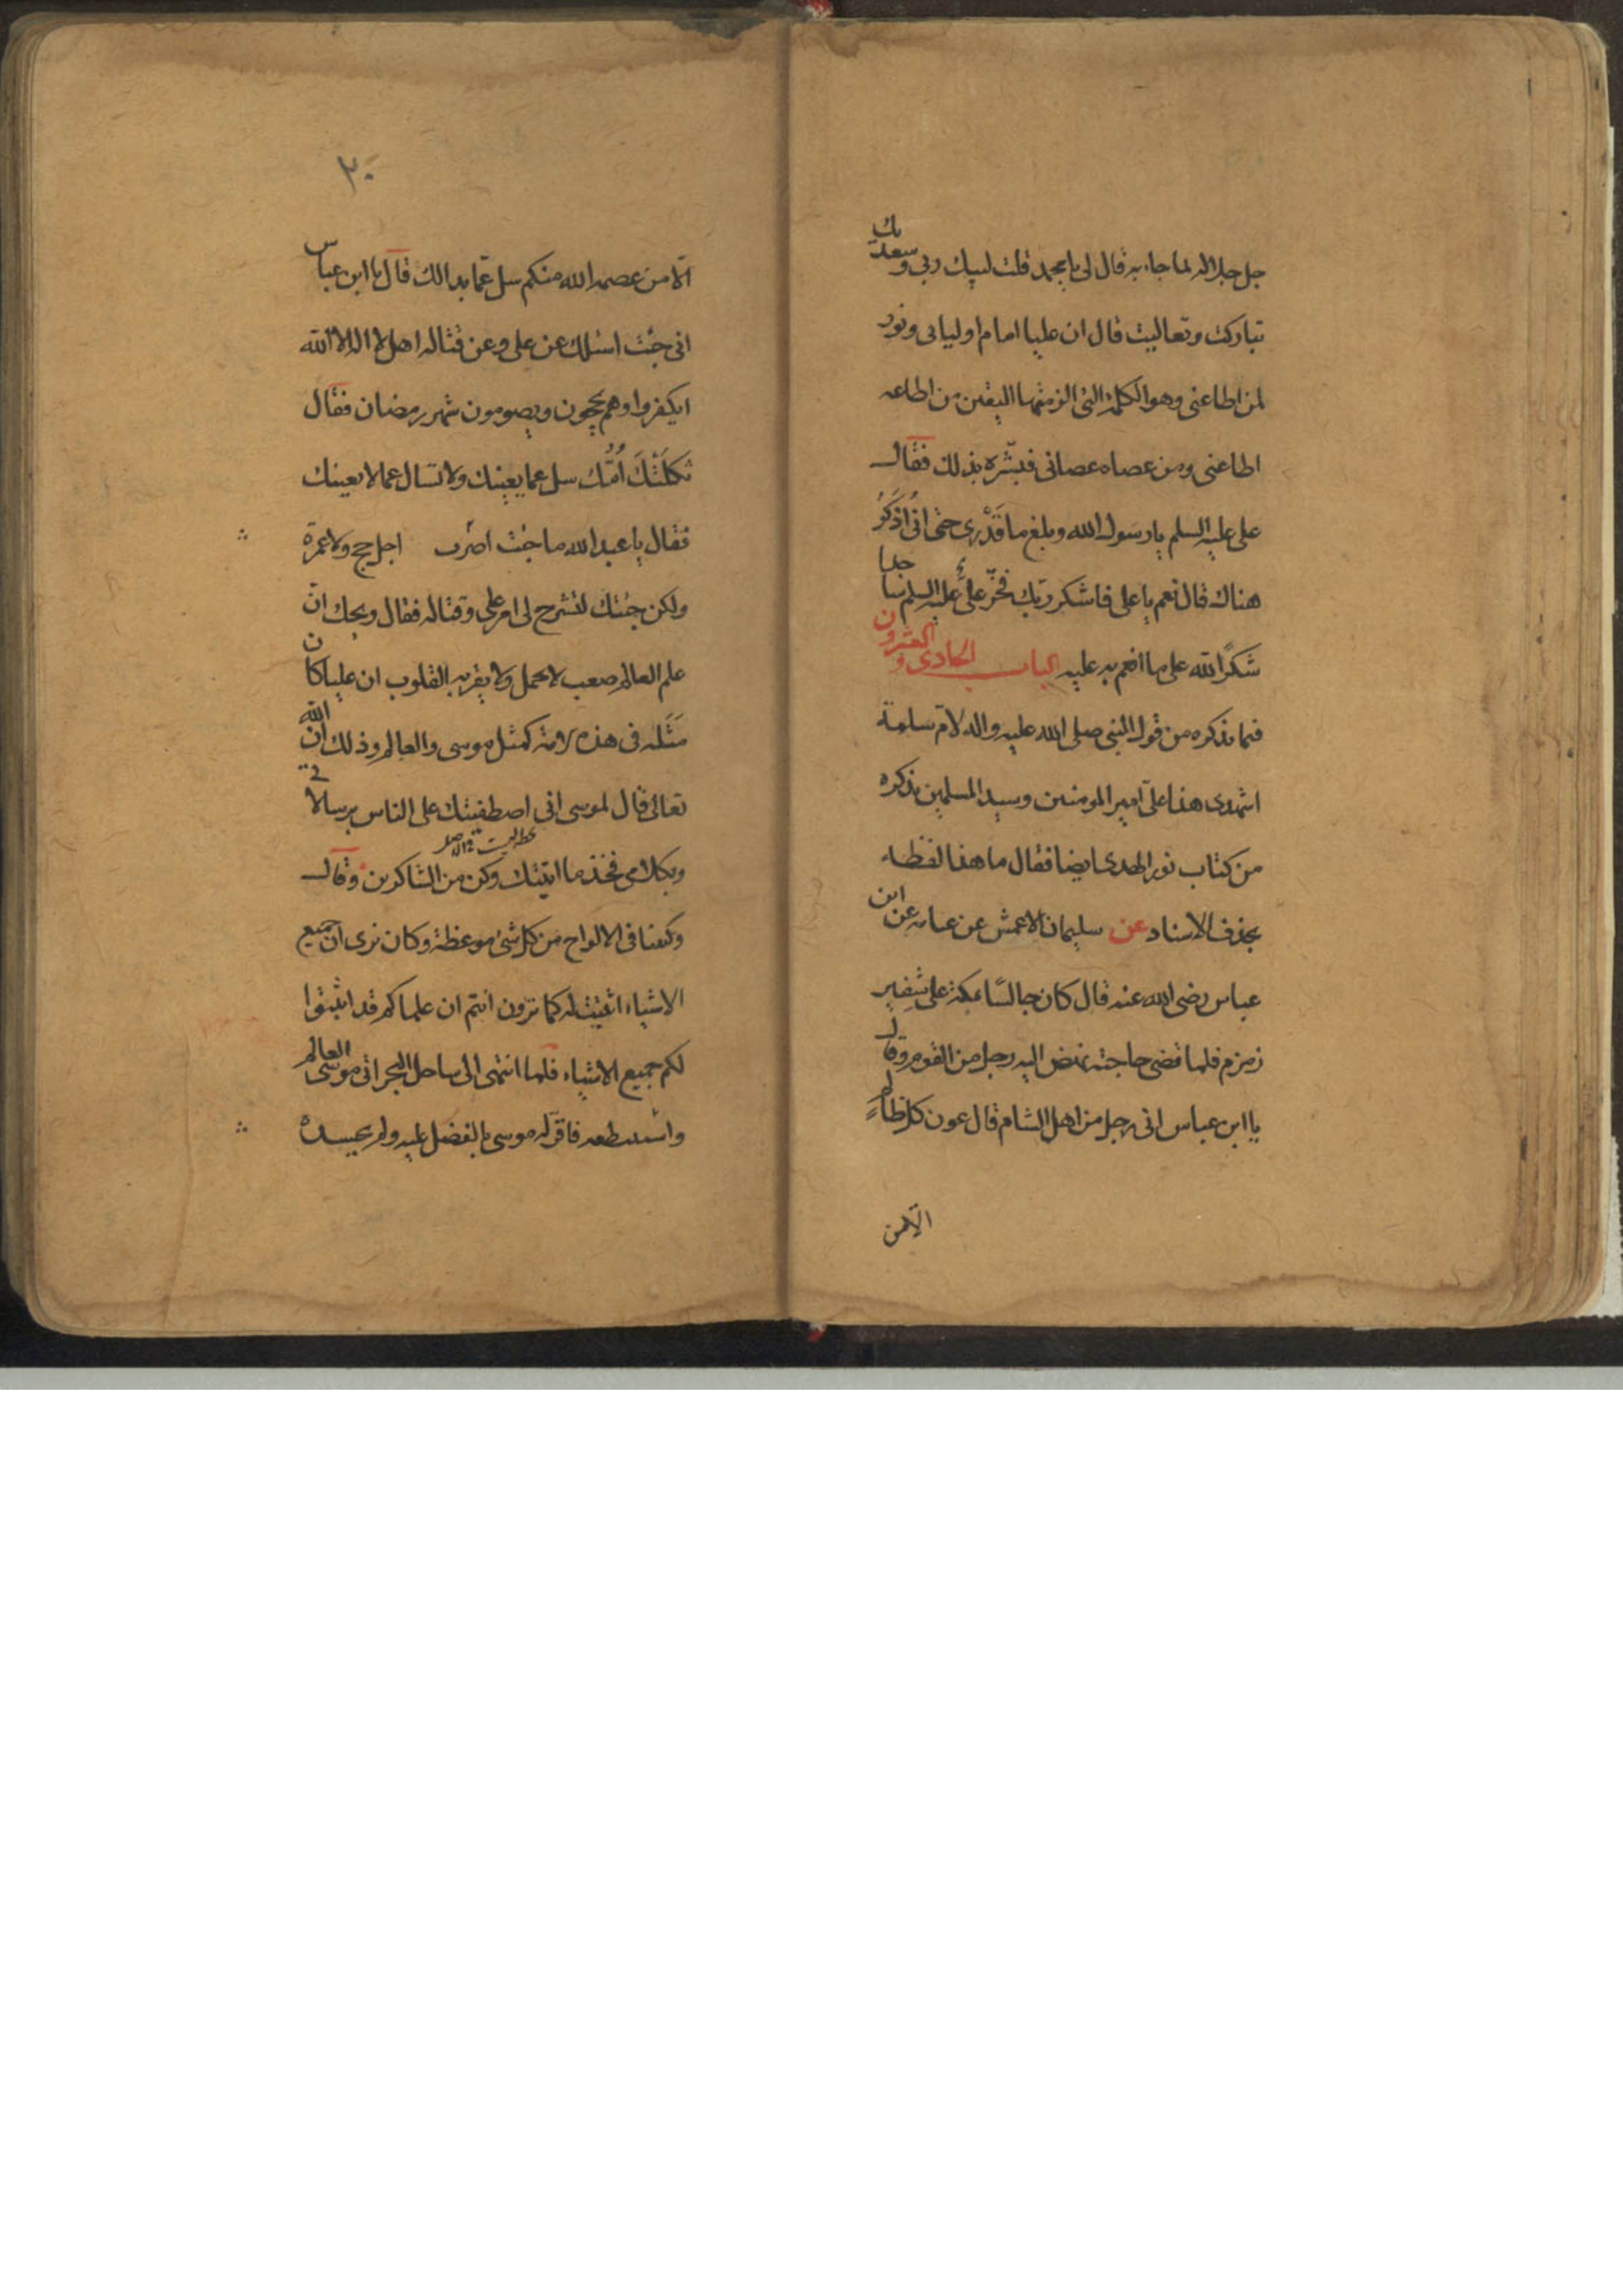 جل جلاله لما جاء به قال لى يا محمد قلت لبيك ربى وسعديك
تباركت وتعاليت قال ان عليا امام اوليائى ونور
لمن اطاعنى وهو الكلمة التى الزمتها اليقين من اطاعه
اطاعنى ومن عصاه عصانى فبشّره بذلك فقال
على عليه السلم يا رسول الله وبلغ ما قَدْرى حتى انّى اُذكَرُ
هناك قال نعم يا على فاشكر ربّك فخرّ علىّ عليه السلم ساجدا
شكرًا لله على ما انعم به عليه الباب الحادى والعشرون
فما نذكره من قول النبى صلى الله عليه واله لامّ سلمة
اشهدى هذا علىّ امير المومنين وسيد المسلمين نذكره
من كتاب نور الهدى ايضا فقال ما هذا لفظه
بحذف الاسناد عن سليمان الاعمش عن عبايه عن ابن
عباس رضى الله عنه قال كان جالسًا بمكة على شفير
زمزم فلما قضى حاجته نهض اليه رجل من القوم وقال
يا ابن عباس انى رجل من اهل الشام قال عون كل ظالم
الّا من
٣٠
الّا من عصمه الله منكم سل عمّا بدا لك قال يا ابن عباس
انى جئت اسئلك عن على وعن قتاله اهل لا اله الا الله
ايكفروا وهم يحجون ويصومون شهر رمضان فقال
ثكلَتْكَ اُمُّك سل عما يعينك ولا تسال عما لا يعينك
فقال يا عبد الله ما جئت اضرب اجل حج ولا عمرة
ولكن جئتك لتشرح لى امر على وقتاله فقال ويحك انّ
علم العالم صعب لا يحمل ولا يقربه القلوب ان عليا كان
مَثَلَه فى هذه الامة كمثل موسى والعالم وذلك ان الله
تعالى قال لموسى انى اصطفيتك على الناس برسالاتى
وبكلامى فخذ ما اتيتك وكن من الشاكرين وقال
وكتبنا فى الالواح من كل شئ موعظة وكان يرى ان جميع
الاشياء اثبتت له كما ترون انتم ان علماكم قد اثبتوا
لكم جميع الاشياء فلما انتهى الى ساحل البحر اتى موسى العالم
واستنطقه فاقرّ له موسى بالفضل عليه ولم يحسده